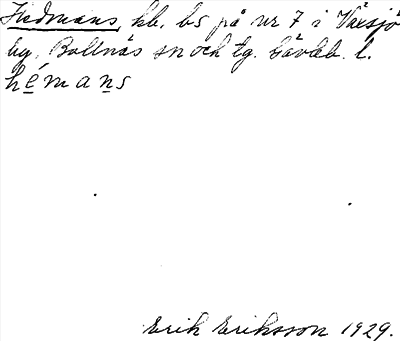 Hedmans, kb. bs på nr 7 i Växsjö
by. Bollnäs sn och tg. Gävleb. l.
hémans
Erik Eriksson 1929.